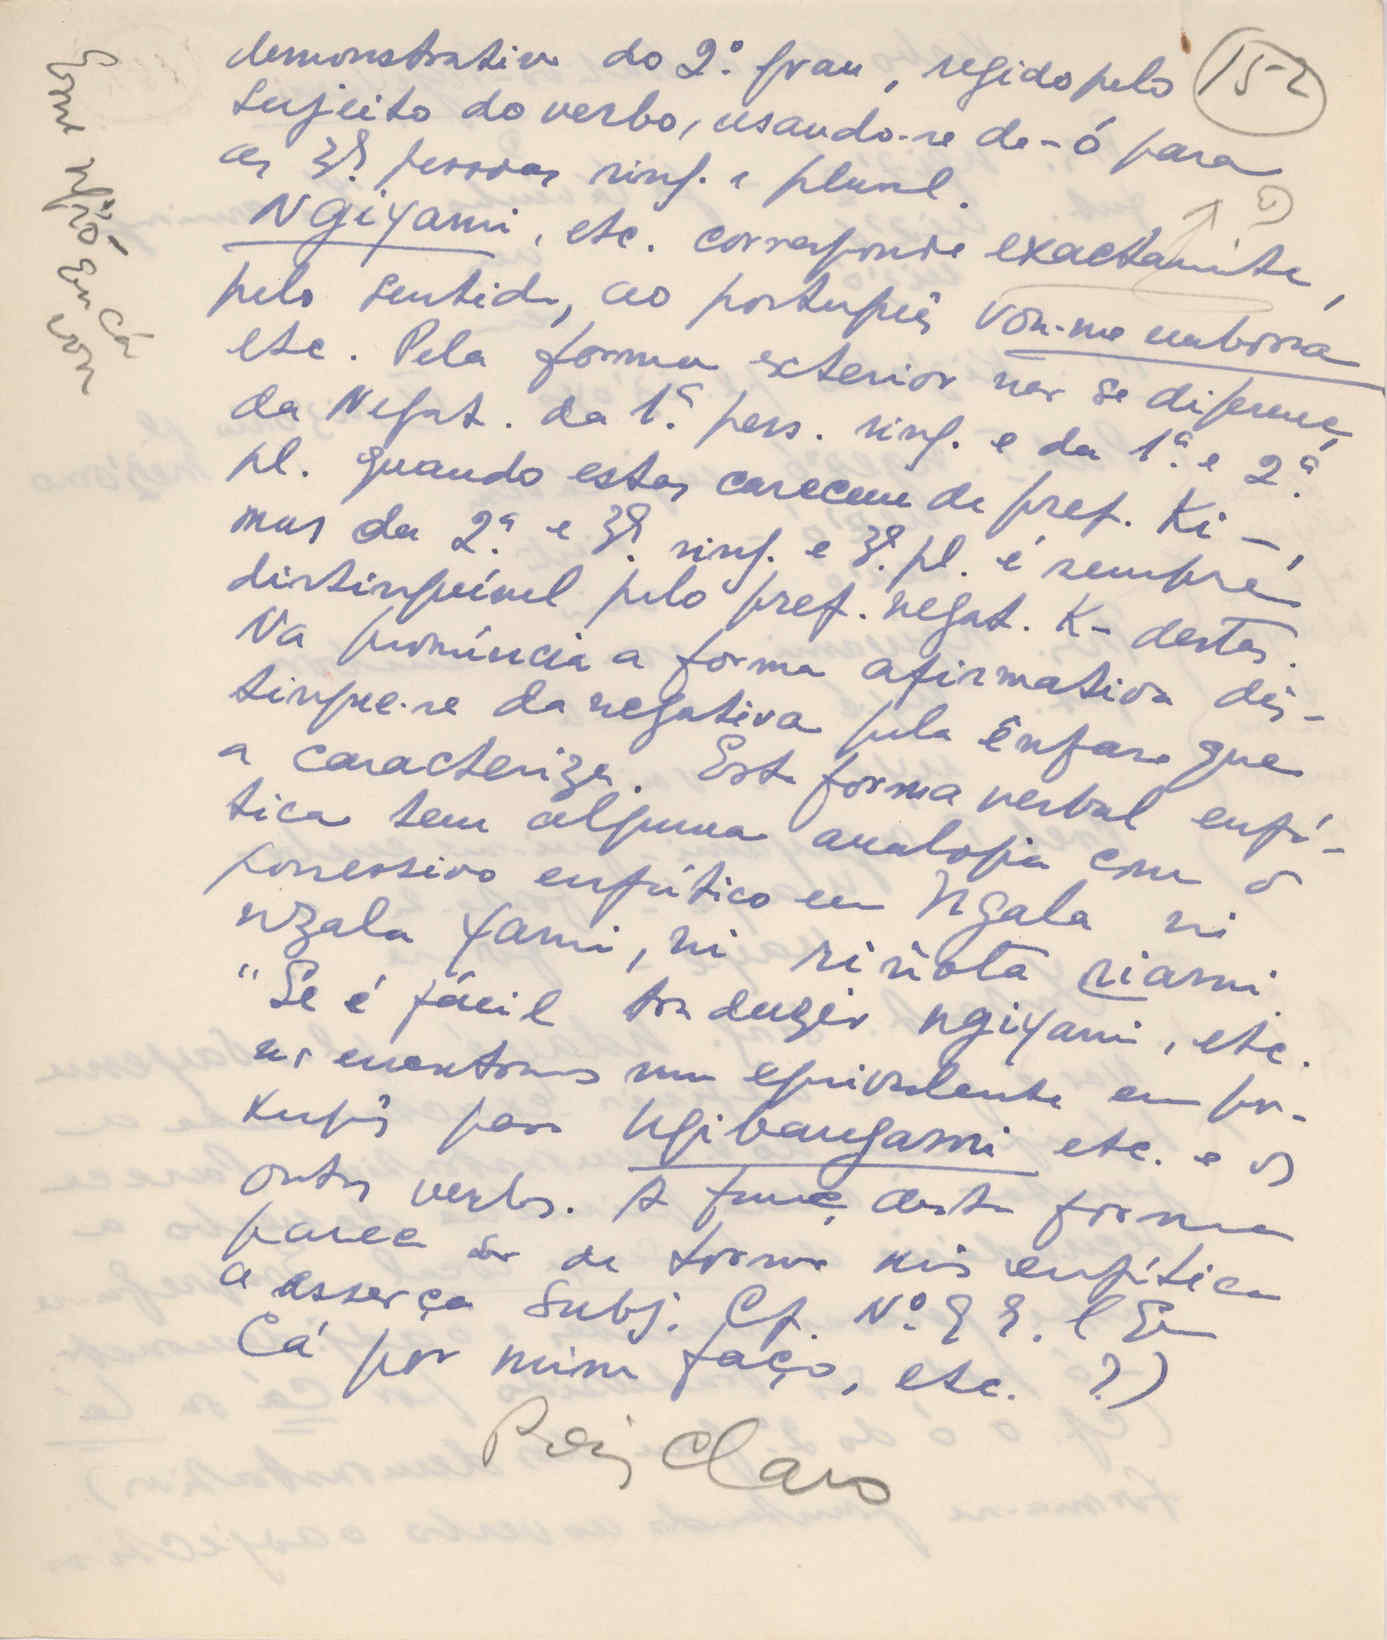 152
demonstrativo do 2.º grau, regido pelo
sujeito do verbo, usando-se de -ó para
as 3.ª pessoas sing. e plural.
Ngiyami, etc. corresponde exactamente,
pelo sentido, ao português vou-me embora
etc. Pela forma exterior não se diferença
da Negat. da 1.ª pess. sing. e da 1.ª e 2.ª
pl. quando estas carecem de pref. Ki-,
mas da 2.ª e 3.ª sing. e 3.ª pl. é sempre
distinguível pelo pref. negat. K- destas.
Na pronúncia a forma afirmativa dis-
tingue-se da negativa pela ênfase que
a caracteriza. Esta forma verbal enfá-
tica tem alguma analogia com o
possessivo enfático em Ngala ni
nzala yami, ni riñota riami
"Se é fácil traduzir ngiyami, etc.
não encontramos um equivalente em por-
tuguês para ngibangami etc. e os
outros verbos. A função desta forma
parece ser de tornar mais enfática
a asserção Subj. Cf. N.º
Cá por mim faço, etc. ?)
Pois Claro
Eu cá
vou